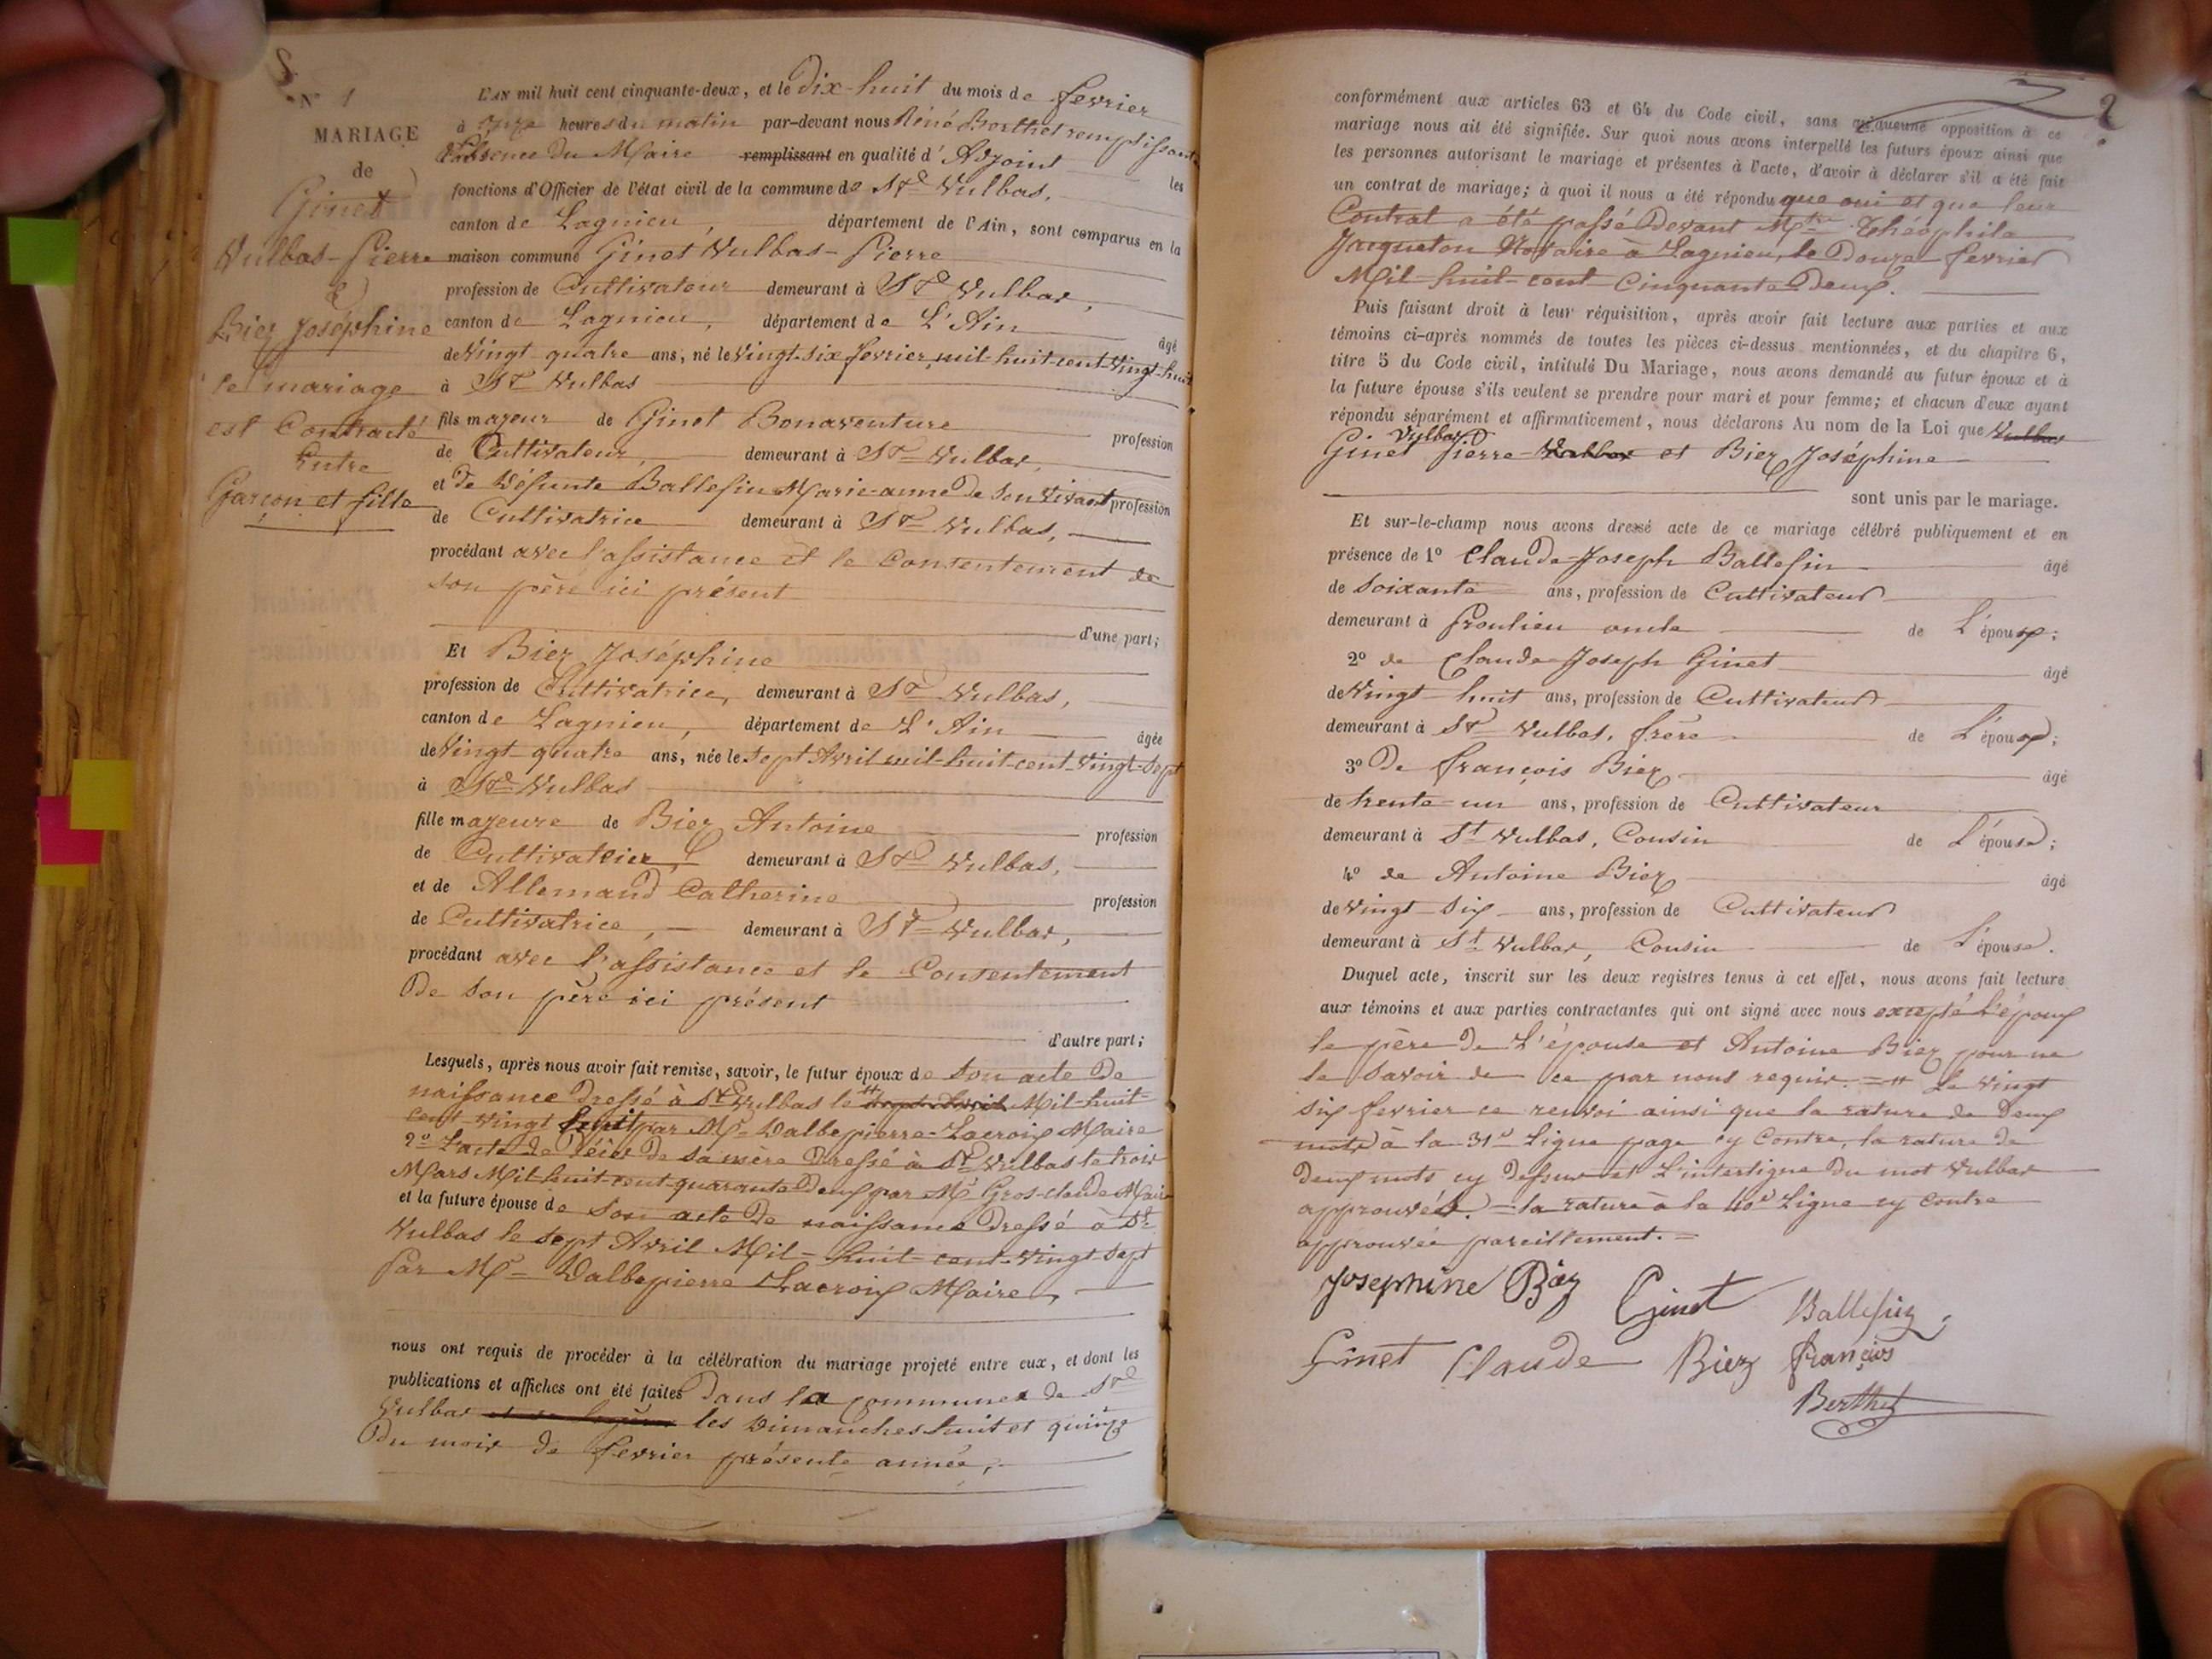 N° 1
MARIAGE
de
Ginet
Vulbas-Pierre
&
Biez Joséphine
le mariage
est Contracté
Entre
Garçon et fille
L'AN mil huit cent cinquante-deux, et le Dix-huit du mois de fevrier
à onze heures du matin par-devant nous Réné Berthet remplissant
l'absence du Maire remplissant en qualité d'Adjoint les
fonctions d'Officier de l'état civil de la commune de St Vulbas,
canton de Lagnieu, département de l'Ain, sont comparus en la
maison commune Ginet Vulbas-Pierre
profession de Cultivateur demeurant à St Vulbas,
canton de Lagnieu, département de L'Ain âgé
de Vingt quatre ans, né le Vingt-six fevrier mil-huit-cent-vingt-huit
à St Vulbas
fils majeur de Ginet Bonaventure profession
de Cultivateur, demeurant à St Vulbas,
et de Défunte Ballefin Marie-anne De son Vivant profession
de Cultivatrice demeurant à St Vulbas,
procédant avec l'assistance et le Consentement de
son père ici présent
d'une part;
Et Biez Joséphine
profession de Cultivatrice, demeurant à St Vulbas,
canton de Lagnieu, département de L'Ain âgée
de Vingt quatre ans, née le sept Avril mil-huit-cent-vingt-sept
à St Vulbas
fille majeure de Biez Antoine profession
de Cultivateur, demeurant à St Vulbas,
et de Allemand Catherine profession
de Cultivatrice, demeurant à St Vulbas,
procédant avec l'assistance et le Consentement
De son père ici présent
d'autre part;
Lesquels, après nous avoir fait remise, savoir, le futur époux de son acte De
naissance dressé à St Vulbas le sept Avril Mil-huit-
cent-vingt huit par Mr Valbepierre-Lacroix Maire
2° L'acte de Décès De sa mère Dressé à St Vulbas le trois
Mars Mil-huit-cent-quarante Deux par Mr Gros-claude Maire
et la future épouse de son acte De naissance Dressé à St
Vulbas le sept Avril Mil-huit-cent-vingt-sept
Par Mr Valbepierre Lacroix Maire,
nous ont requis de procéder à la célébration du mariage projeté entre eux, et dont les
publications et affiches ont été faites Dans la commune de St
Vulbas les Dimanches huit et quinze
Du mois de fevrier présente année,
2
conformément aux articles 63 et 64 du Code civil, sans qu'aucune opposition à ce
mariage nous ait été signifiée. Sur quoi nous avons interpellé les futurs époux ainsi que
les personnes autorisant le mariage et présentes à l'acte, d'avoir à déclarer s'il a été fait
un contrat de mariage; à quoi il nous a été répondu que oui et que leur
Contrat a été passé Devant Mtre Théophile
Jacqueton Notaire à Lagnieu, le Douze fevrier
Mil-huit-cent-Cinquante-Deux.
Puis faisant droit à leur réquisition, après avoir fait lecture aux parties et aux
témoins ci-après nommés de toutes les pièces ci-dessus mentionnées, et du chapitre 6,
titre 5 du Code civil, intitulé Du Mariage, nous avons demandé au futur époux et à
la future épouse s'ils veulent se prendre pour mari et pour femme; et chacun d'eux ayant
répondu séparément et affirmativement, nous déclarons Au nom de la Loi que Vulbas
Vulbas
Ginet Pierre Vulbas et Biez Joséphine
sont unis par le mariage.
Et sur-le-champ nous avons dressé acte de ce mariage célébré publiquement et en
présence de 1° Claude-Joseph Ballefin âgé
de soixante ans, profession de Cultivateur
demeurant à Proulieu oncle de L'époux;
2° de Claude-Joseph Ginet âgé
de Vingt-huit ans, profession de Cultivateur
demeurant à St Vulbas, frère de L'époux;
3° De François Biez âgé
de trente-un ans, profession de Cultivateur
demeurant à St Vulbas, Cousin de L'épouse;
4° de Antoine Biez âgé
de Vingt-six ans, profession de Cultivateur
demeurant à St Vulbas, Cousin de L'épouse.
Duquel acte, inscrit sur les deux registres tenus à cet effet, nous avons fait lecture
aux témoins et aux parties contractantes qui ont signé avec nous excepté L'époux
le père De L'épouse et Antoine Biez pour ne
le savoir de ce par nous requis. = # Le vingt
six fevrier ce renvoi ainsi que la rature de Deux
mots à la 31e Ligne page cy Contre, la rature de
Deux mots cy Dessus et L'interligne Du mot Vulbas
approuvés. = la rature à la 40e Ligne cy contre
approuvée pareillement. =
Josephine Biez Ginet Ballefin
Ginet Claude Biez françois
Berthet